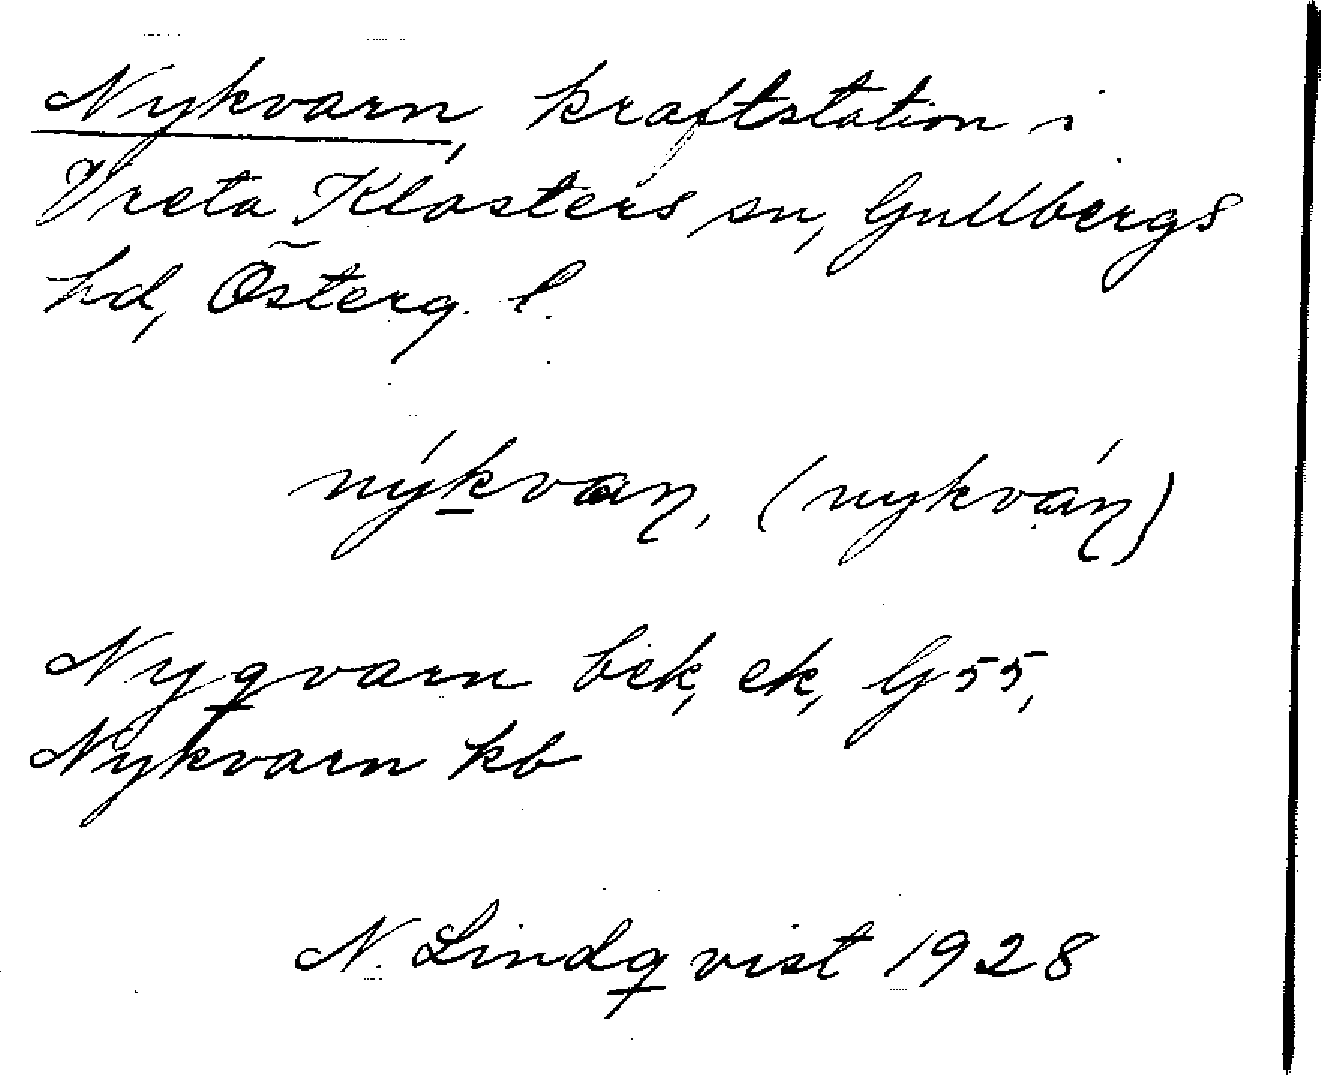 Nykvarn, kraftstation i
Vreta Klosters sn, Gullbergs
hd, Österg. l.
nýkvaṇ, (nykváṇ)
Nyqvarn bek, ek, G 55,
Nykvarn kb
N. Lindqvist 1928